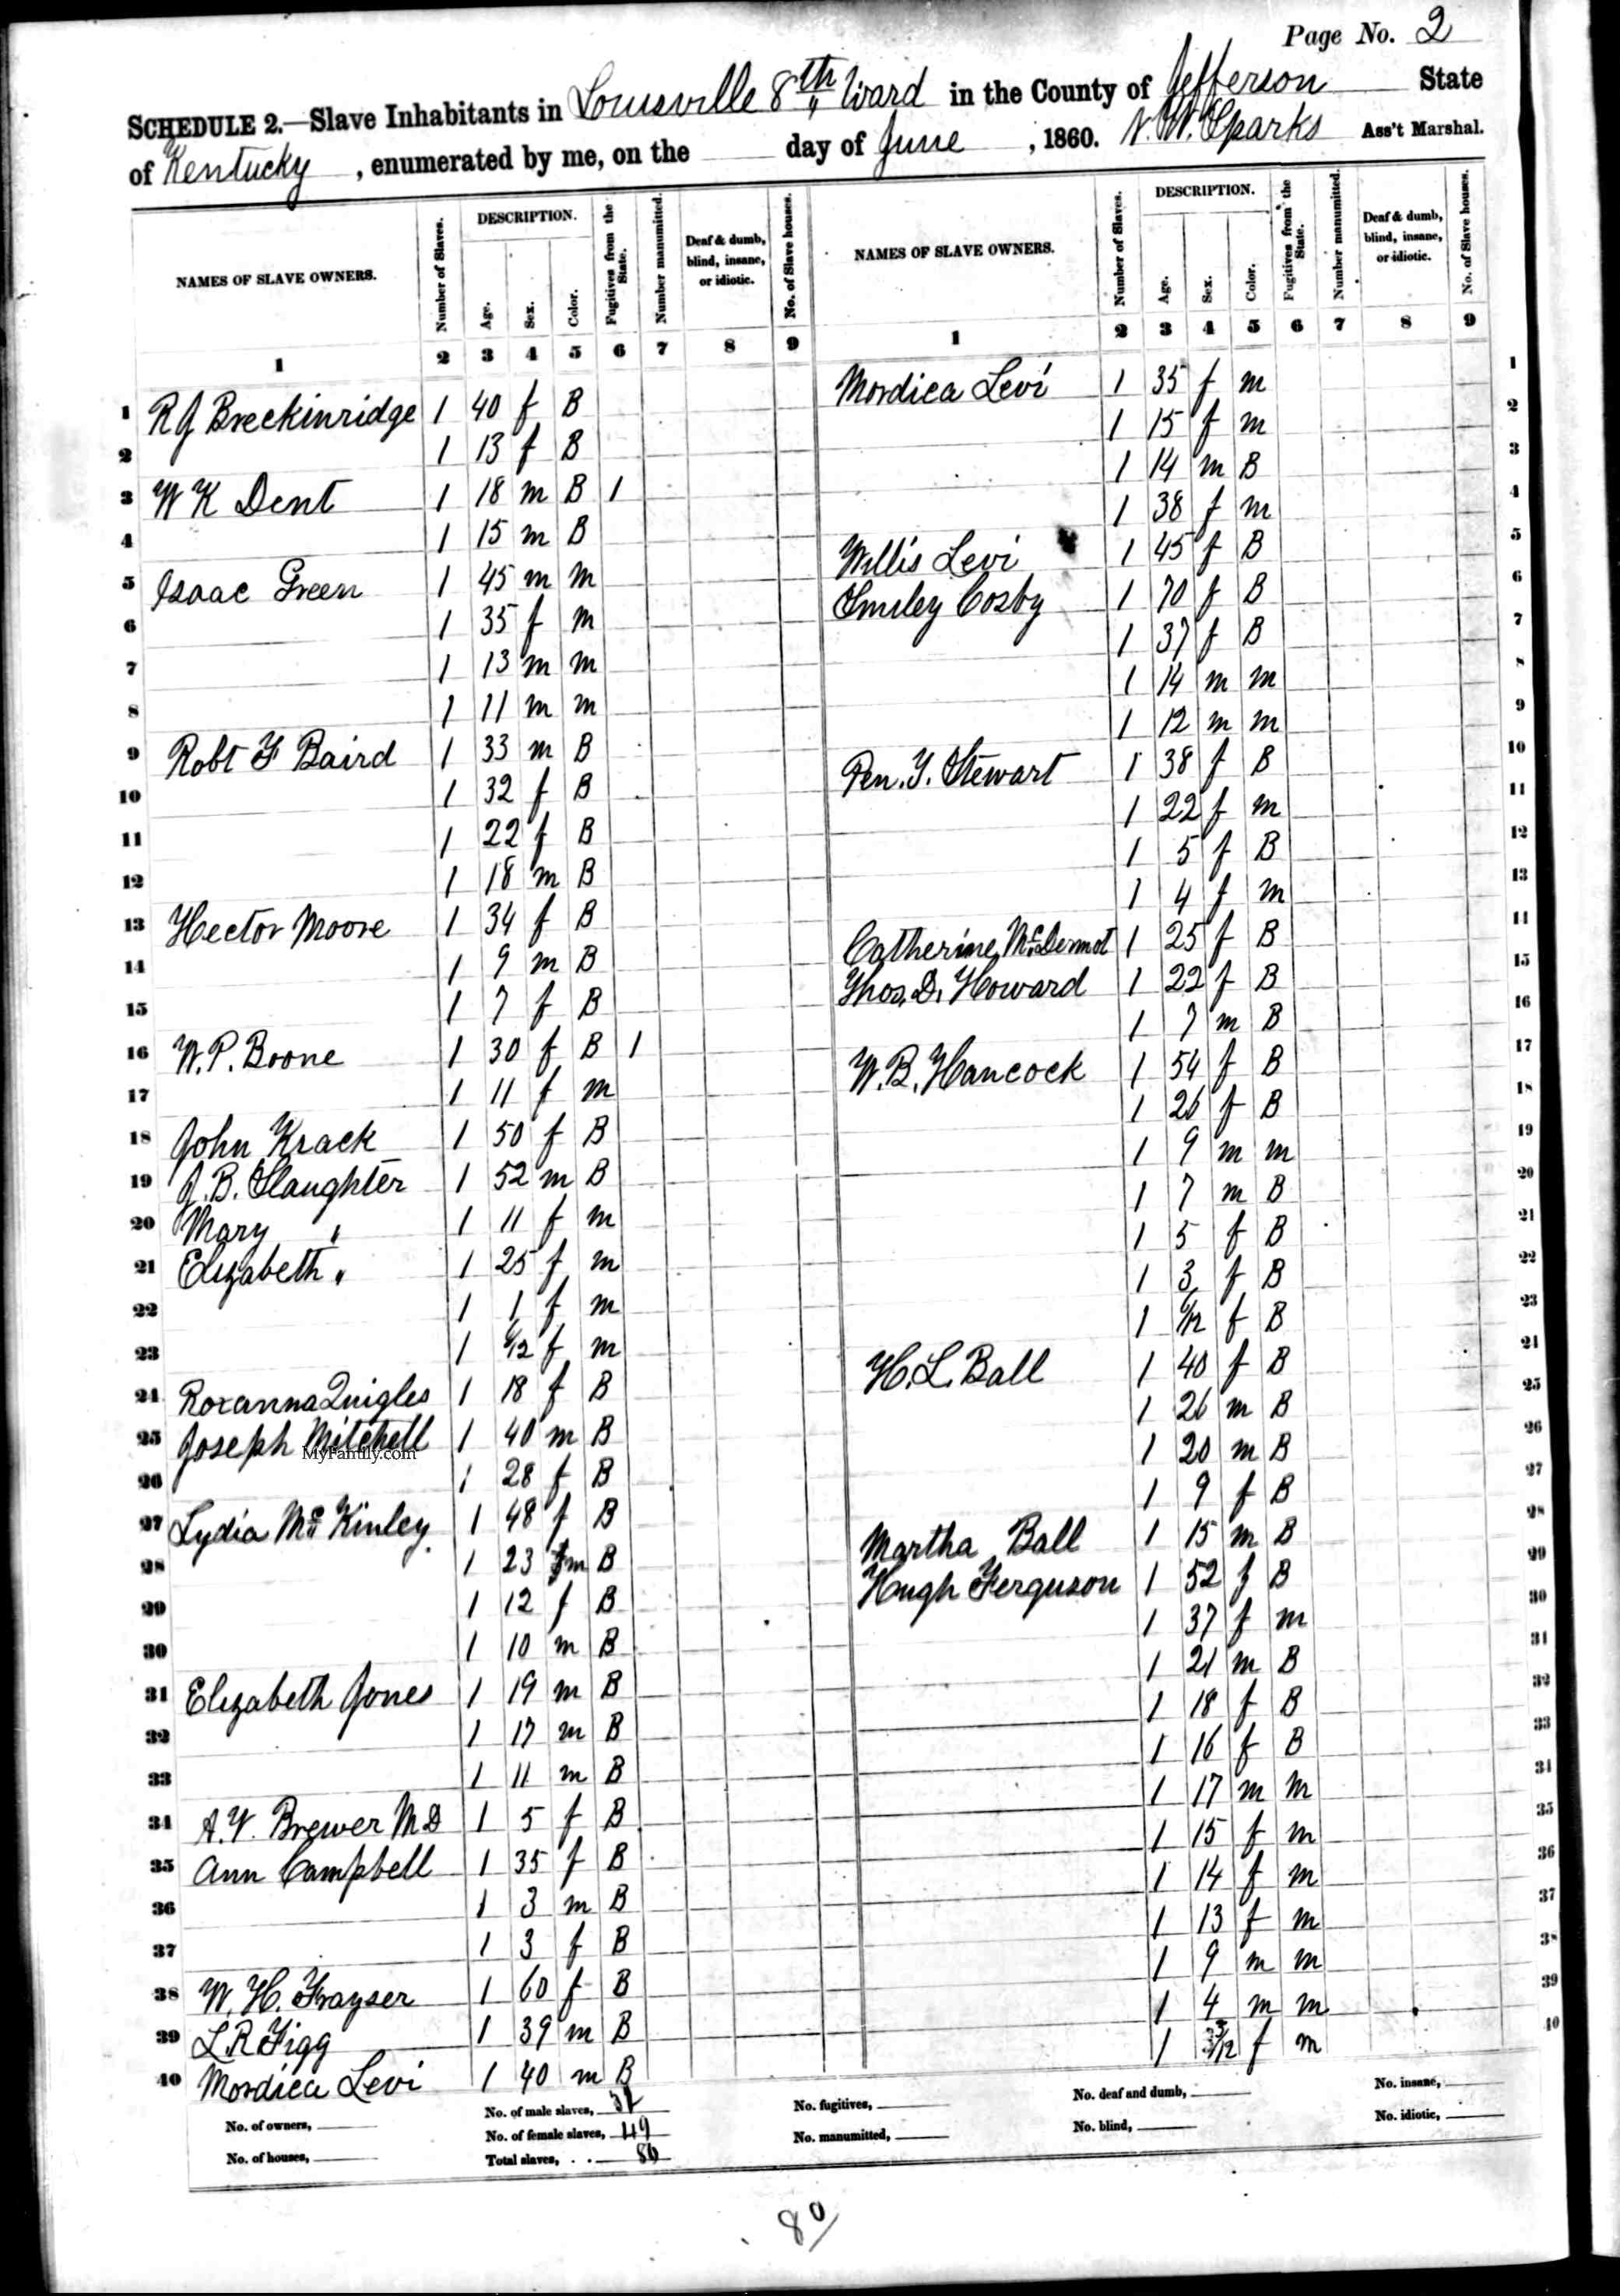 Page No. 2
SCHEDULE 2.—Slave Inhabitants in Louisville 8th Ward in the County of Jefferson State
of Kentucky, enumerated by me, on the day of June, 1860. N. W. Sparks Ass't Marshal.
NAMES OF SLAVE OWNERS. Number of Slaves. DESCRIPTION. Age. Sex. Color. Fugitives from the State. Number manumitted. Deaf & dumb, blind, insane, or idiotic. No. of Slave houses. NAMES OF SLAVE OWNERS. Number of Slaves. DESCRIPTION. Age. Sex. Color. Fugitives from the State. Number manumitted. Deaf & dumb, blind, insane, or idiotic. No. of Slave houses.
1 2 3 4 5 6 7 8 9 1 2 3 4 5 6 7 8 9
1 R J Breckinridge 1 40 f B Mordica Levi 1 35 f m 1
2 1 13 f B 1 15 f m 2
3 W K Dent 1 18 m B 1 1 14 m B 3
4 1 15 m B 1 38 f m 4
5 Isaac Green 1 45 m m Willis Levi 1 45 f B 5
6 1 35 f m Smiley Cosby 1 70 f B 6
7 1 13 m m 1 37 f B 7
8 1 11 m m 1 14 m m 8
9 Robt F Baird 1 33 m B 1 12 m m 9
10 1 32 f B Pen. Y. Stewart 1 38 f B 10
11 1 22 f B 1 22 f m 11
12 1 18 m B 1 5 f B 12
13 Hector Moore 1 34 f B 1 4 f m 13
14 1 9 m B Catherine McDermot 1 25 f B 14
15 1 7 f B Thos. D. Howard 1 22 f B 15
16 W. P. Boone 1 30 f B 1 1 7 m B 16
17 1 11 f m W. B. Hancock 1 54 f B 17
18 John Krack 1 50 f B 1 26 f B 18
19 J. B. Slaughter 1 52 m B 1 9 m m 19
20 Mary " 1 11 f m 1 7 m B 20
21 Elizabeth " 1 25 f m 1 5 f B 21
22 1 1 f m 1 3 f B 22
23 1 /12 f m 1 /12 f B 23
24 Roxanna Quigles 1 18 f B H. L. Ball 1 40 f B 24
25 Joseph Mitchell 1 40 m B 1 26 m B 25
MyFamily.com
26 1 28 f B 1 20 m B 26
27 Lydia McKinley 1 48 f B 1 9 f B 27
28 1 23 m B Martha Ball 1 15 m B 28
29 1 12 f B Hugh Ferguson 1 52 f B 29
30 1 10 m B 1 37 f m 30
31 Elizabeth Jones 1 19 m B 1 21 m B 31
32 1 17 m B 1 18 f B 32
33 1 11 m B 1 16 f B 33
34 A. Y. Brewer M D 1 5 f B 1 17 m m 34
35 Ann Campbell 1 35 f B 1 15 f m 35
36 1 3 m B 1 14 f m 36
37 1 3 f B 1 13 f m 37
38 W. H. Frayser 1 60 f B 1 9 m m 38
39 L. R Figg 1 39 m B 1 4 m m 39
40 Mordica Levi 1 40 m B 1 3/12 f m 40
No. of owners, No. of male slaves, 31 No. fugitives, No. deaf and dumb, No. insane,
No. of houses, No. of female slaves, 49 No. manumitted, No. blind, No. idiotic,
Total slaves, 80
80